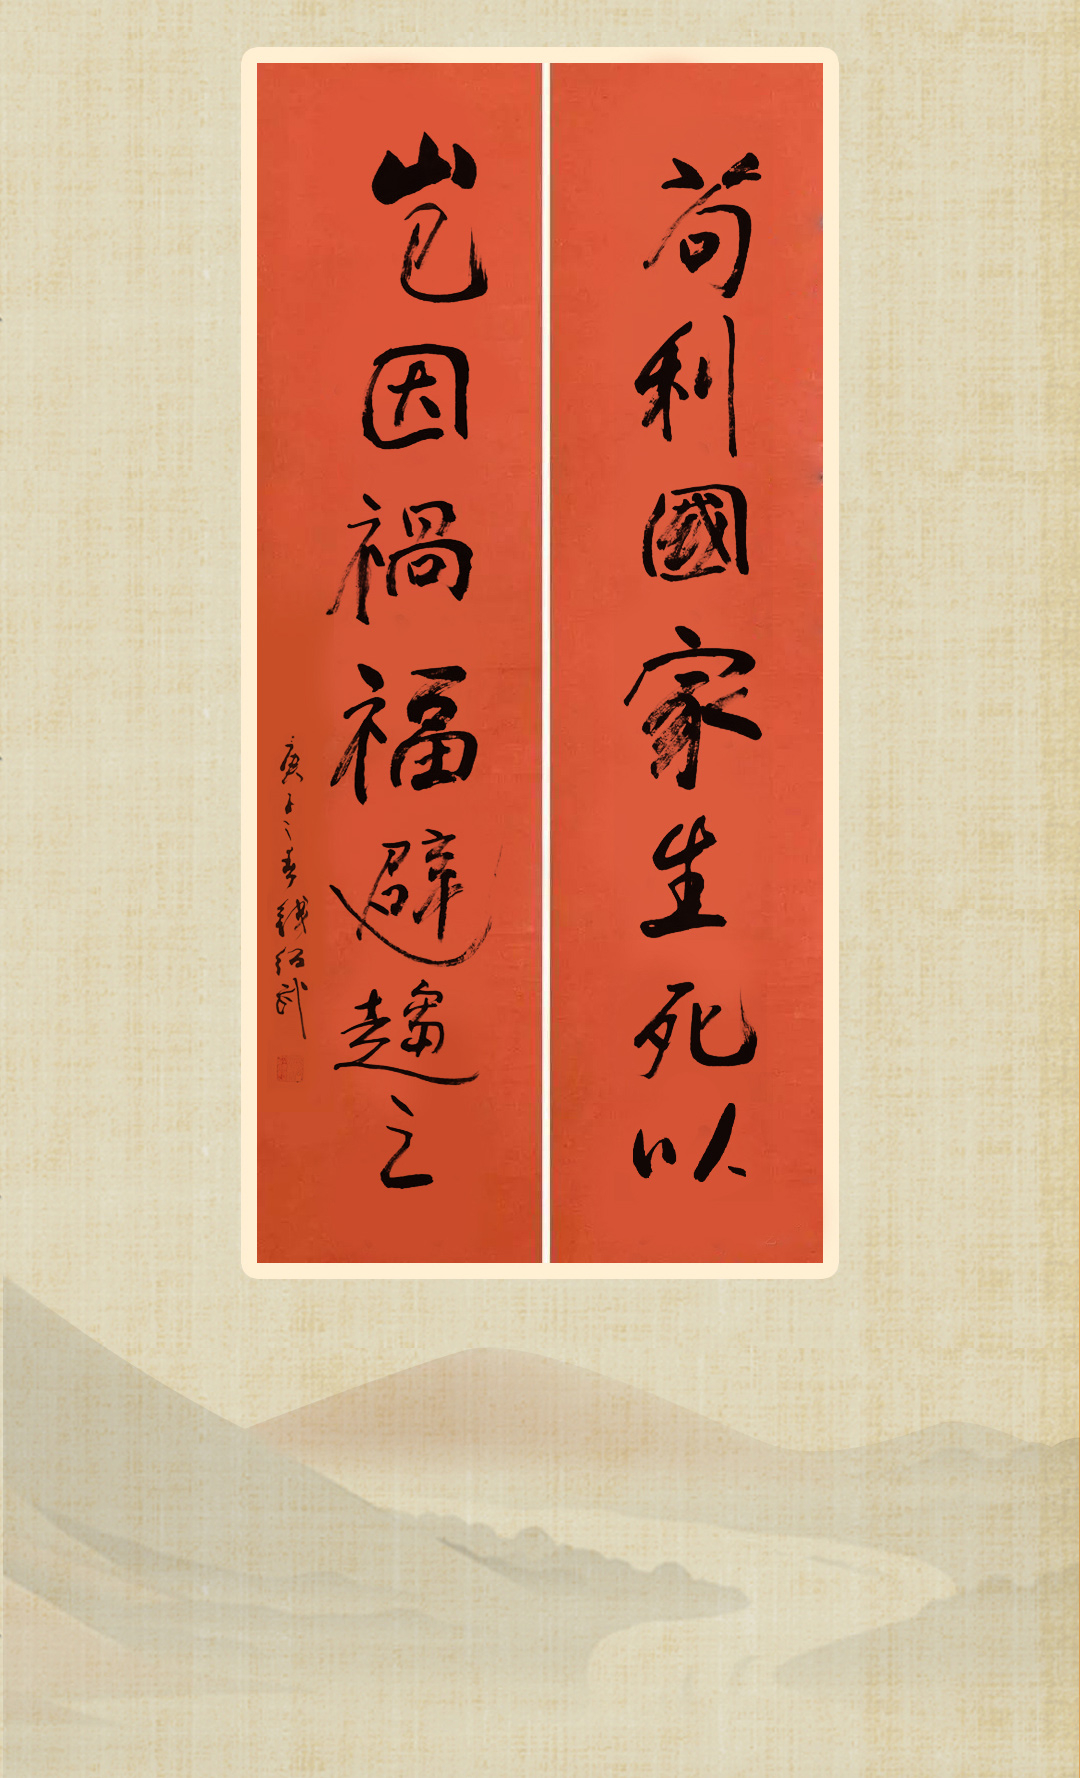 苟利國家生死以
豈因禍福避趨之
庚子之春 錢紹武